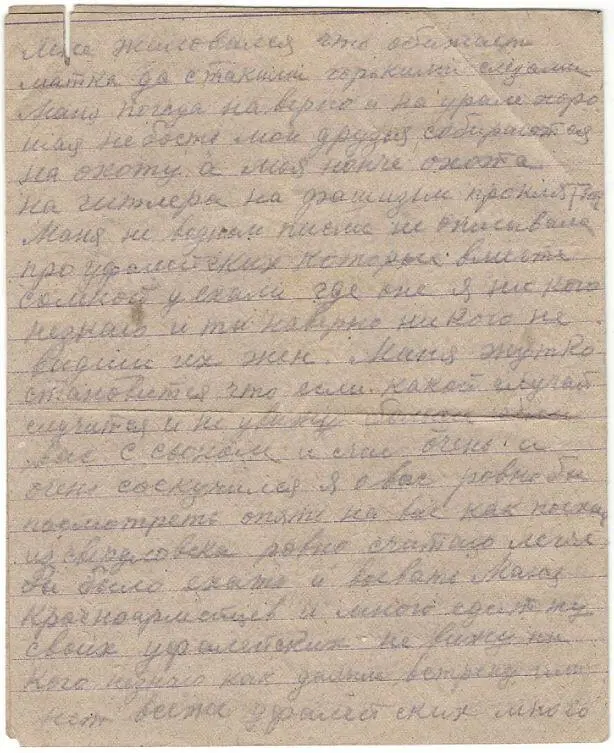 мне жаловался что обижает
матка да с такими горькими слезами
Маня погода наверно и на урале хоро
шая небось мои друзья собираются
на охоту а мня нонче охота
на гитлера на фашизьм проклят
Маня не водном писме не описывала
про уфалейских которые вместе
сомной уехали где оне я ни кого
незнаю и ты наверно никого не
видиш их жен. Маня жутко
становится что если какой случай
случится и не увижу
вас с сыном и очень и
очень соскучился я о вас ровно бы
посмотреть опять на вас как поехал
из свердловска ровно считаю легче
бы было ехать и воевать Маня
красноармейцев и много едит ну
своих уфалейских не вижу ни
кого незнаю как дальше встречу или
нет вести уфалейских много